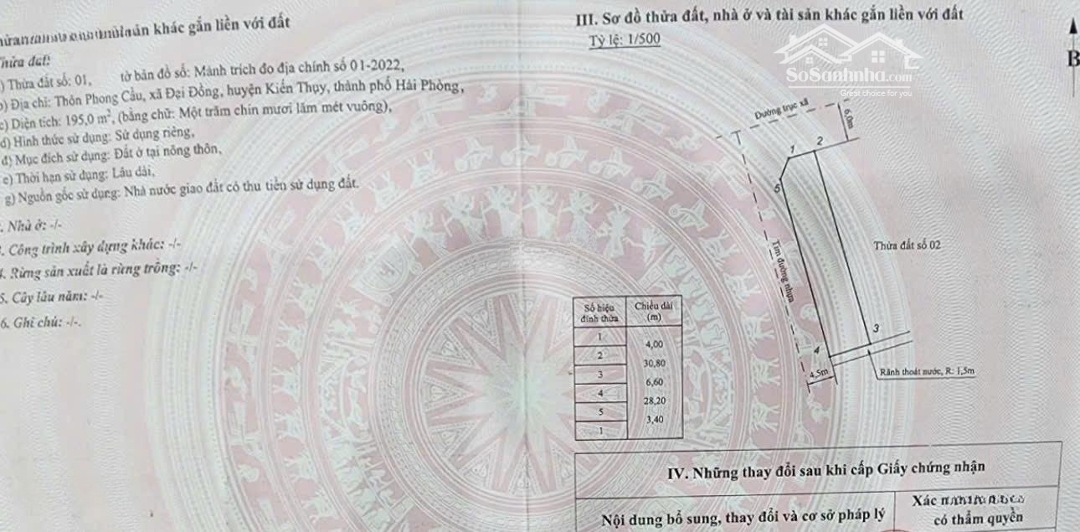 sản khác gắn liền với đất
Thửa đất:
) Thửa đất số: 01, tờ bản đồ số: Mảnh trích đo địa chính số 01-2022,
) Địa chỉ: Thôn Phong Cầu, xã Đại Đồng, huyện Kiến Thụy, thành phố Hải Phòng,
c) Diện tích: 195,0 m², (bằng chữ: Một trăm chín mươi lăm mét vuông),
d) Hình thức sử dụng: Sử dụng riêng,
đ) Mục đích sử dụng: Đất ở tại nông thôn,
e) Thời hạn sử dụng: Lâu dài,
g) Nguồn gốc sử dụng: Nhà nước giao đất có thu tiền sử dụng đất.
. Nhà ở: -/-
. Công trình xây dựng khác: -/-
4. Rừng sản xuất là rừng trồng: -/-
5. Cây lâu năm: -/-
6. Ghi chú: -/-
III. Sơ đồ thửa đất, nhà ở và tài sản khác gắn liền với đất
Tỷ lệ: 1/500
SoSanhnha.com
Great choice for you
B
Đường trục xã
6,0m
1
2
5
Tim đường nhựa
Thửa đất số 02
3
4
4,5m
Rãnh thoát nước, R: 1,5m
Số hiệu đỉnh thửa
Chiều dài (m)
1
4,00
2
30,80
3
6,60
4
28,20
5
3,40
1
IV. Những thay đổi sau khi cấp Giấy chứng nhận
Nội dung bổ sung, thay đổi và cơ sở pháp lý
Xác
có thẩm quyền